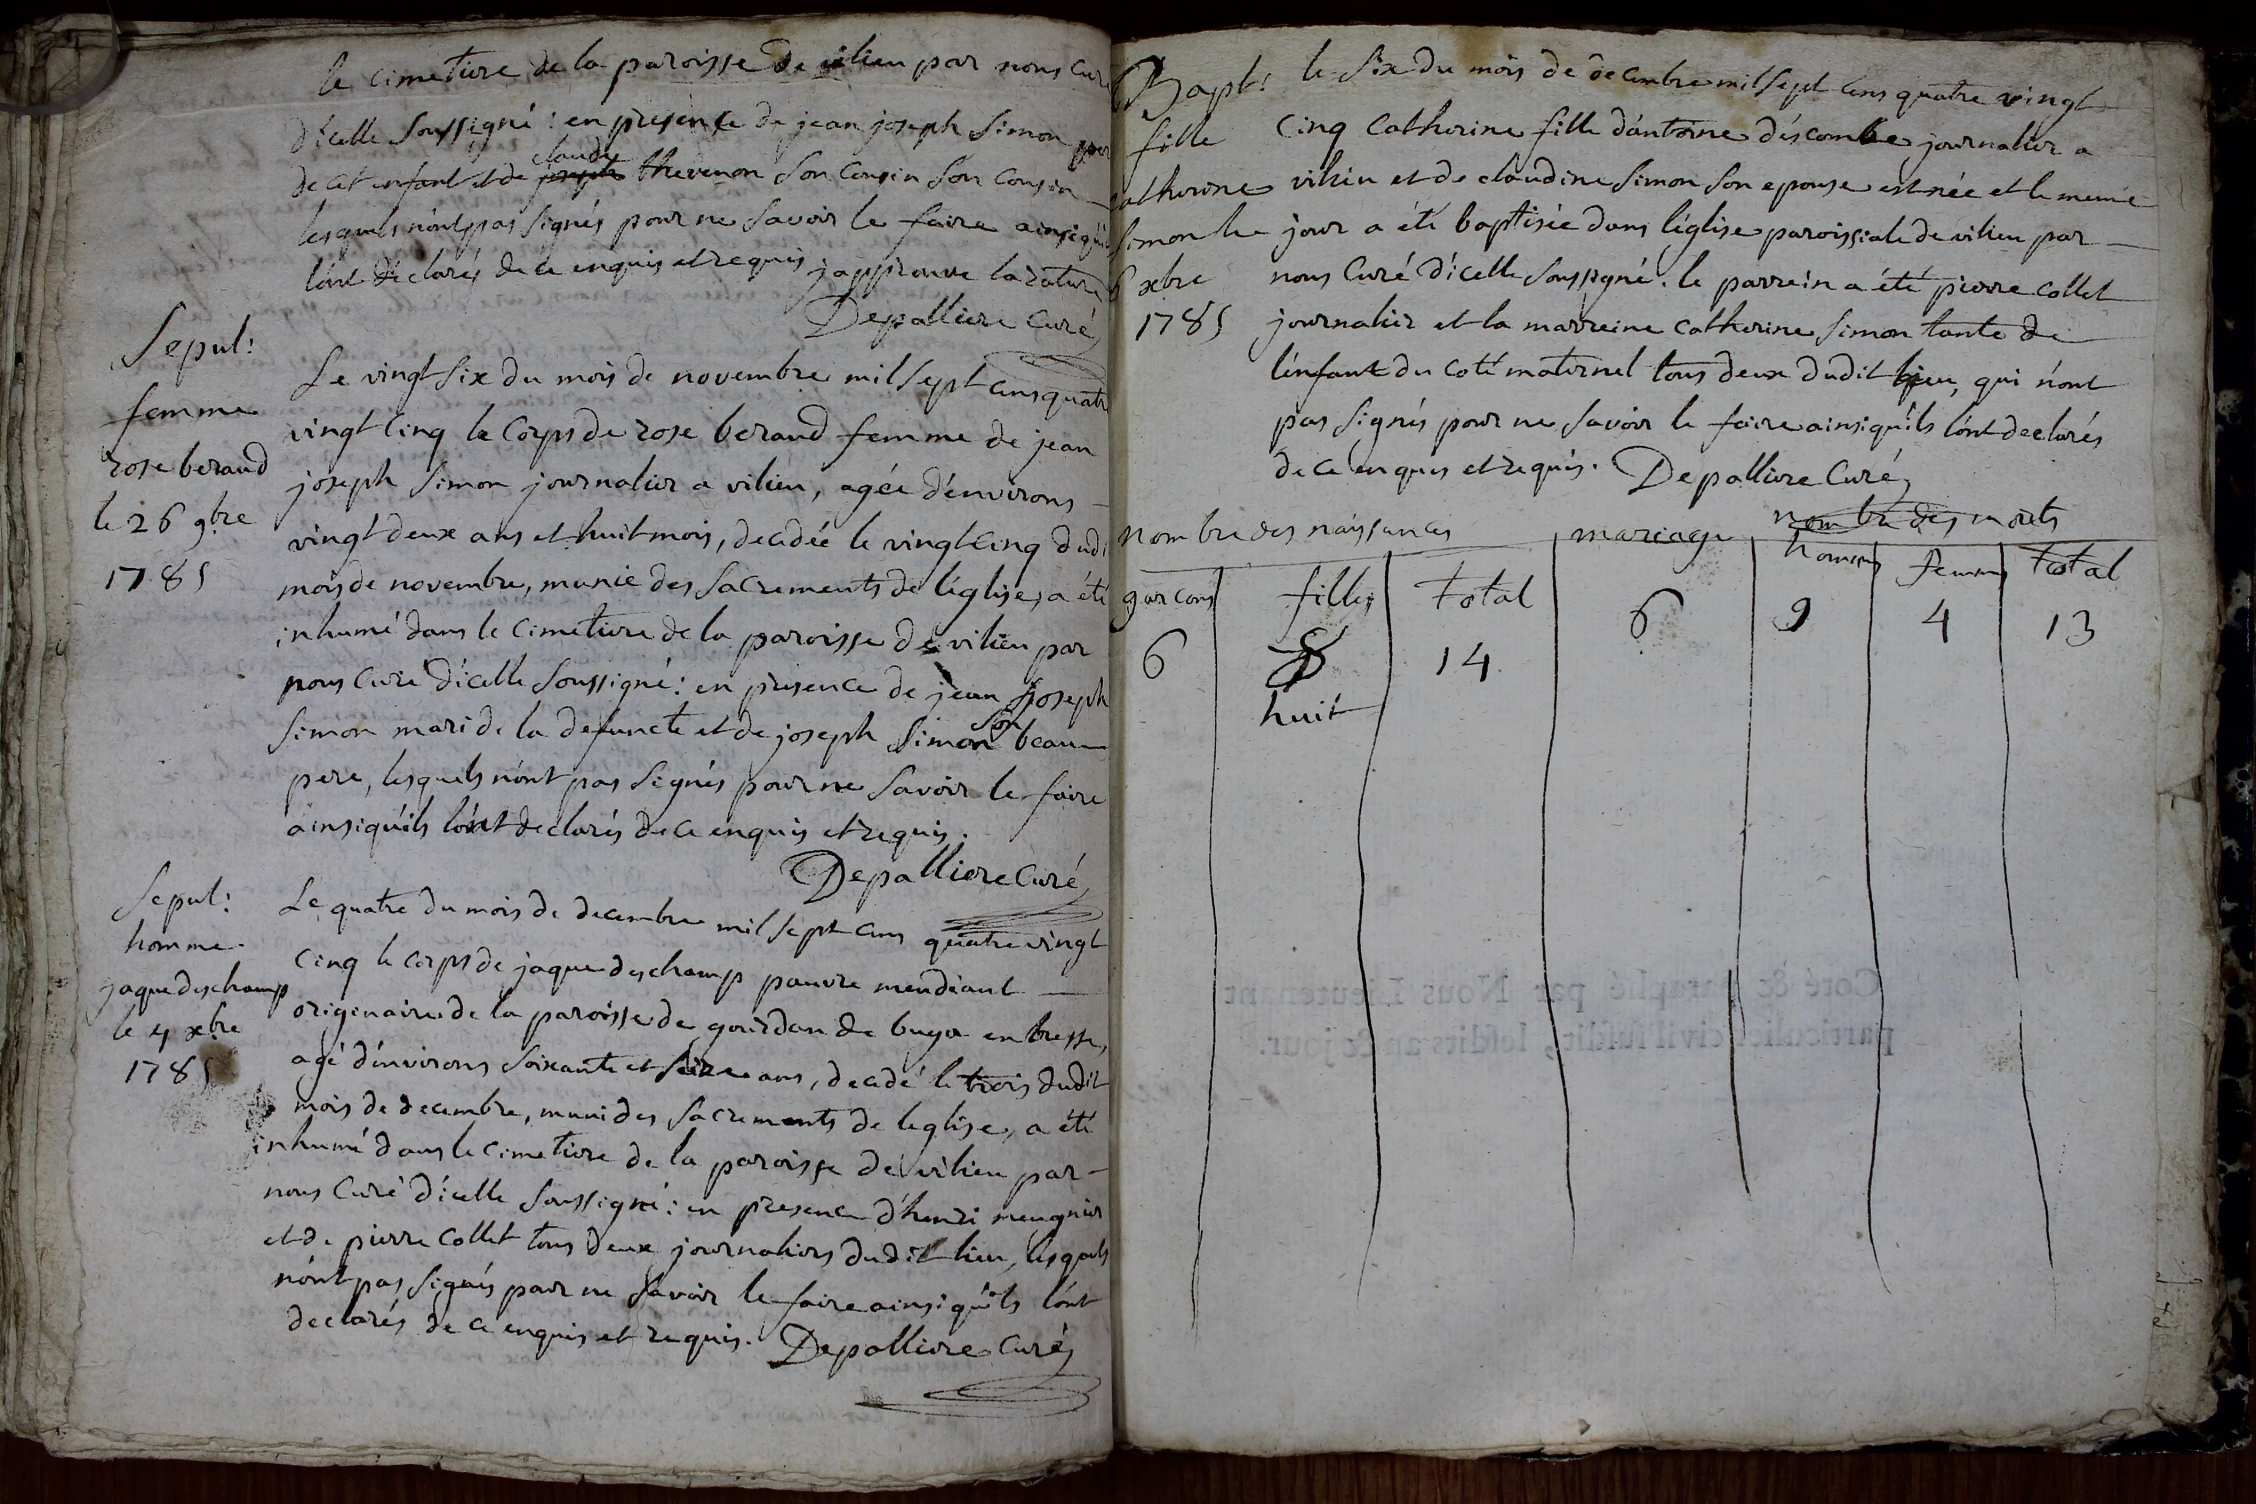 le cimetiere de la paroisse de vilieu par nous curé
d'icelle soussigné : en presence de jean joseph simon pere
claude
de cet enfant et de joseph thevenon son cousin son cousin
lesquels n'ont pas signés pour ne savoir le faire ainsi qu'ils
l'ont déclarés de ce enquis et requis j'approuve la rature
Depalliere curé
Sepul:
femme
rose beraud
le 26 9bre
1785
Le vingt six du mois de novembre mil sept cens quatre
vingt cinq le corps de rose beraud femme de jean
joseph simon journalier a vilieu, agée d'environs
vingt deux ans et huit mois, decedée le vingt cinq dudit
mois de novembre, munie des sacrements de l'église, a été
inhumé dans le cimetiere de la paroisse de vilieu par
nous curé d'icelle soussigné : en presence de jean joseph
simon mari de la defuncte et de joseph simon son beau
pere, lesquels n'ont pas signés pour ne savoir le faire
ainsi qu'ils l'ont declarés de ce enquis et requis.
Depalliere curé
Sepul:
homme
jaque deschamp
le 4 xbre
1785
Le quatre du mois de decembre mil sept cens quatre vingt
cinq le corps de jaque deschamp pauvre mendiant
originaire de la paroisse de gourdan de bugor en bresse,
agé d'environs soixante et seize ans, decedé le trois dudit
mois de decembre, muni des sacrements de leglise, a été
inhumé dans le cimetiere de la paroisse de vilieu par
nous curé d'icelle soussigné : en presence d'henri meugnier
et de pierre collet tous deux journaliers dudit lieu, lesquels
n'ont pas signés pour ne savoir le faire ainsi qu'ils l'ont
declarés de ce enquis et requis. Depalliere curé
Bapt:
fille
catherine
simon le
6 xbre
1785
le six du mois de decembre mil sept cens quatre vingt
cinq catherine fille d'antoine déscombe journalier a
vilieu et de claudine simon son epouse est née et le meme
jour a été baptisée dans l'église paroissiale de vilieu par
nous curé d'icelle soussigné. le parrein a été pierre collet
journalier et la marreine catherine simon tante de
l'enfant du coté maternel tous deux dudit lieu, qui n'ont
pas signés pour ne savoir le faire ainsi qu'ils l'ont declarés
de ce enquis et requis. Depalliere curé
nombre des naissances mariage nombre des morts
garcons filles total hommes femmes total
6 8 14 6 9 4 13
huit
Coté & Paraphé par Nous Lieutenant
particulier civil susdit, lesdits an & jour.